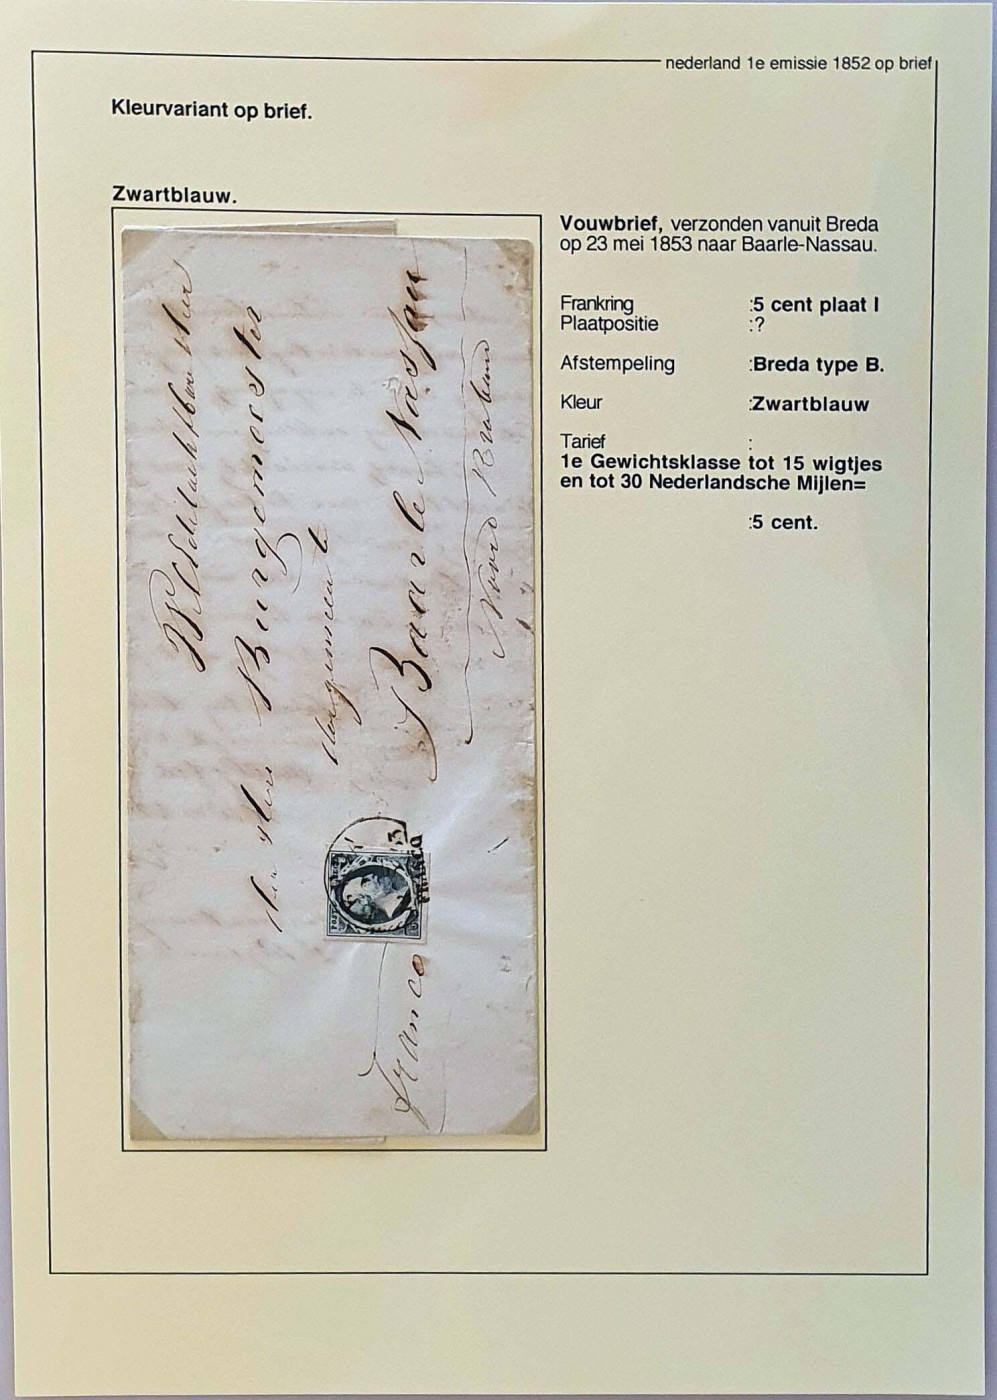 nederland 1e emissie 1852 op brief
Kleurvariant op brief.
Zwartblauw.
Vouwbrief, verzonden vanuit Breda
op 23 mei 1853 naar Baarle-Nassau.
Frankring :5 cent plaat I
Plaatpositie :?
Afstempeling :Breda type B.
Kleur :Zwartblauw
Tarief :
1e Gewichtsklasse tot 15 wigtjes
en tot 30 Nederlandsche Mijlen=
:5 cent.
Burgemeester
Baarle Nassau
Noord Braband
franco
POST
FRANCO